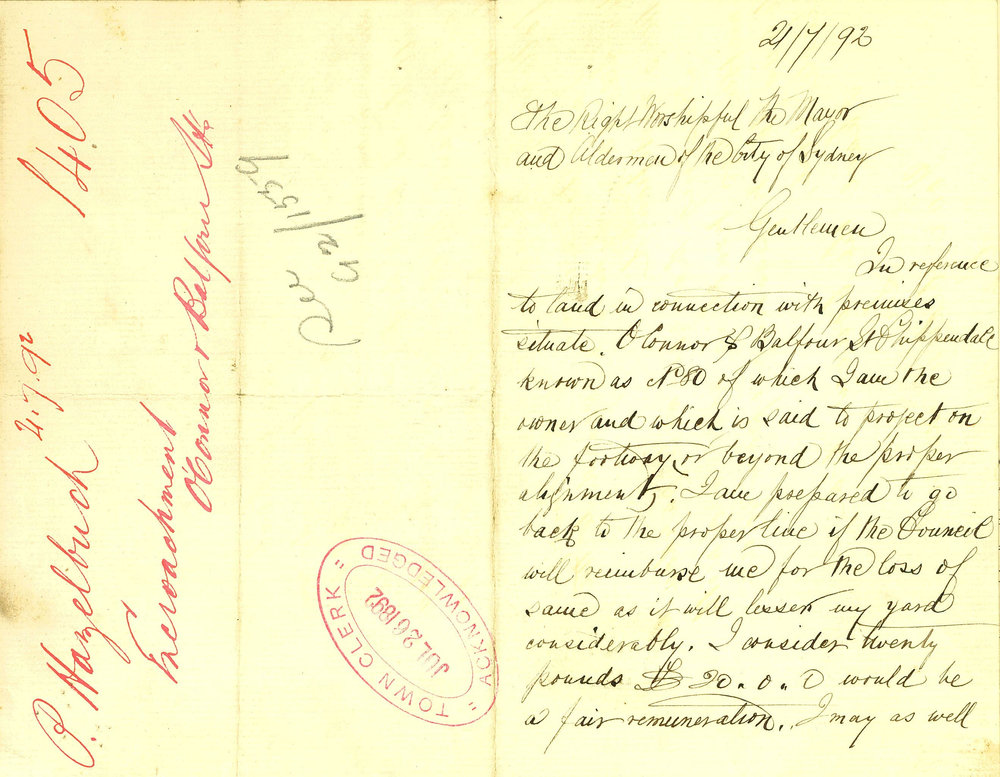 P. Hazelbuch 21.7.92 1405
Encroachment
O'Connor & Balfour Sts
92/1559
" TOWN CLERK "
JUL 26 1892
ACKNOWLEDGED
21/7/92
The Right Worshipful The Mayor
and Aldermen of the City of Sydney
Gentlemen
In reference
to land in connection with premises
situate. O Connor & Balfour St Chippendale
known as No 80 of which I am the
owner and which is said to project on
the footway or beyond the proper
alignment, I am prepared to go
back to the proper line if the Council
will reimburse me for the loss of
same as it will lesser my yard
considerably. I consider twenty
pounds £20.0.0 would be
a fair remuneration. I may as well